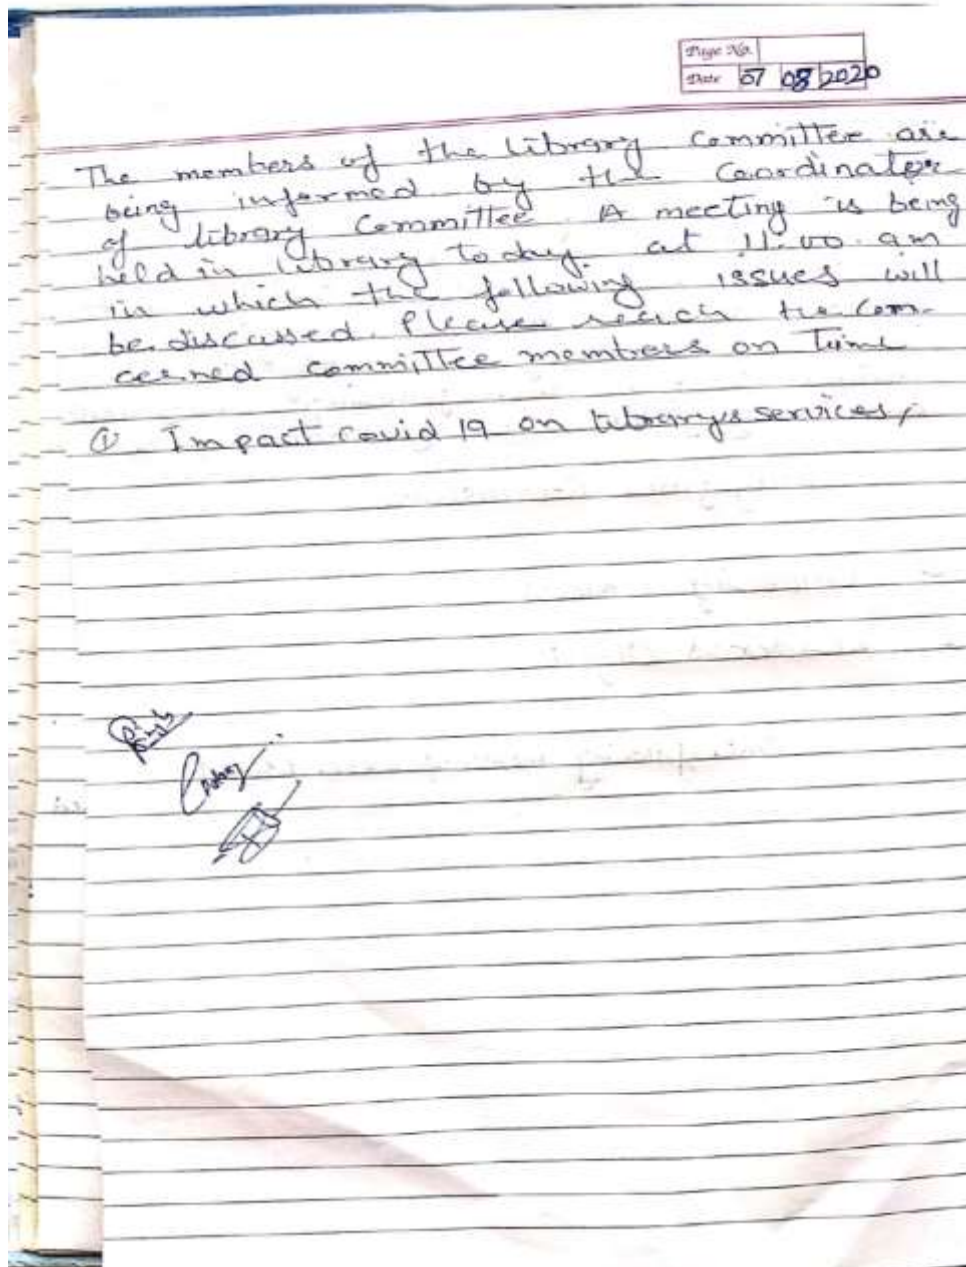 Page No.
Date 07 08 2020
The members of the library committee are
being informed by the Coordinator
of library Committee A meeting is being
held in library today at 11:00 am
in which the following issues will
be discussed. Please reach the con-
cerned committee members on Time
① Impact Covid 19 on library's services,